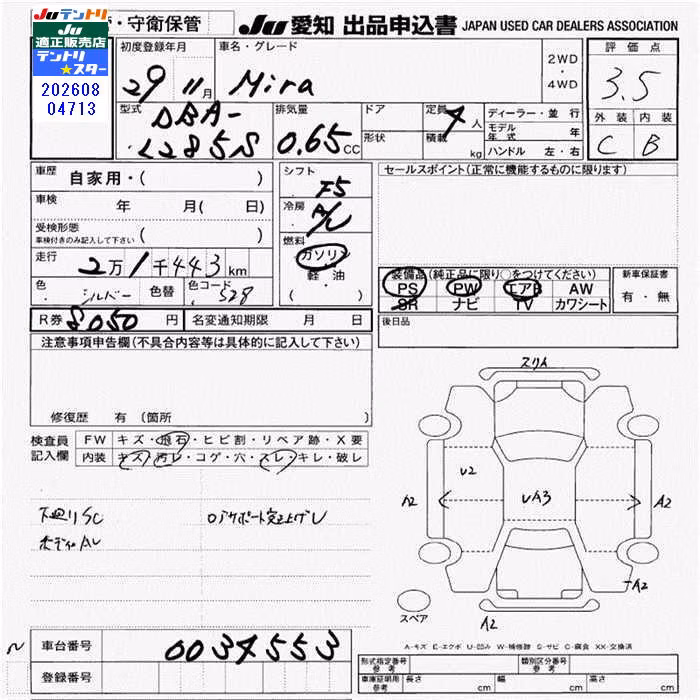 Juテントリ
適正販売店
テントリ
★スター
202608
04713
・守衛保管
Ju 愛知 出品申込書 JAPAN USED CAR DEALERS ASSOCIATION
初度登録年月
29 11月
車名・グレード
Mira
2WD
・
4WD
評価点
3.5
外装 内装
C B
型式
DBA-
L285S
排気量
0.65 CC
ドア
形状
定員 4 人
積載 kg
ディーラー・並行
モデル年式 年
ハンドル 左・右
車歴 自家用・( )
車検 年 月( 日)
受検形態
車検付きのみ記入して下さい ( )
走行 2万1千443km
色 シルバー 色替 色コード S28
シフト
F5
冷房
A/C
燃料
ガソリン
軽・油
( )
セールスポイント(正常に機能するものに限ります)
装備品(純正品に限り○をつけてください)
PS PW エアB AW
SR ナビ TV カワシート
新車保証書
有・無
R券 8050 円 名変通知期限 月 日
後日品
注意事項申告欄(不具合内容等は具体的に記入して下さい)
修復歴 有(箇所 )
検査員
記入欄
FW キズ・飛石・ヒビ割・リペア跡・X要
内装 キズ・汚レ・コゲ・穴・スレ・キレ・破レ
下廻りSC
スリキ
U2
UA3
A2
A2
A2
A2
スペア
A-キズ E-エクボ U-凹み W-補修跡 S-サビ C-腐食 XX-交換済
車台番号 0034553
登録番号
形式指定番号
参考
類別区分番号
参考
車庫証明用
参考
長さ cm 幅 cm 高さ cm